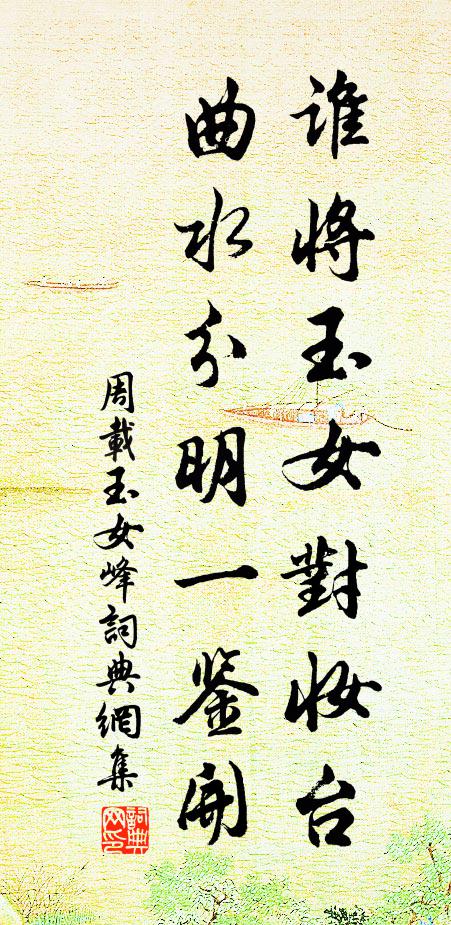 谁将玉女對妆台
曲水分明一鉴開
周載玉女峰詞典網集
詞典网印